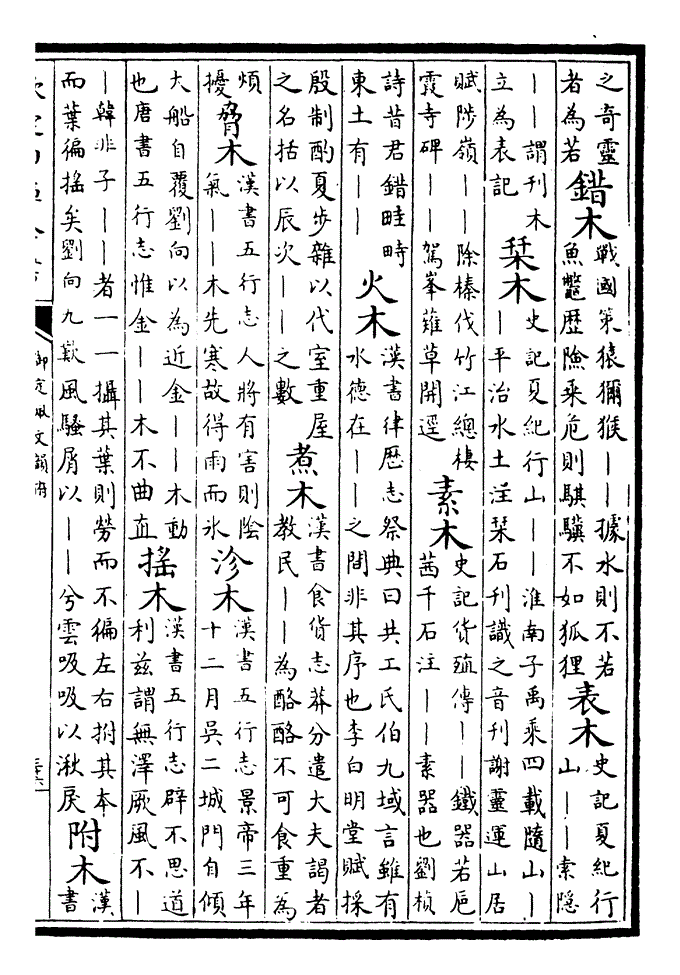 之奇靈者為若錯木戰國策猿獼猴——據水則不若魚鼈歷險乘危則騏驥不如狐狸表木史記夏紀行山——索隱
——謂刊木立為表記栞木史記夏紀行山——淮南子禹乘四載隨山——平治水土注栞石刊識之音刊謝靈運山居
賦陟嶺——除榛伐竹江總棲霞寺碑——駕峯薙草開逕素木史記貨殖傳——鐵器若巵茜千石注——素器也劉楨
詩昔君錯畦畤東土有——火木漢書律歷志祭典曰共工氏伯九域言雖有水德在——之間非其序也李白明堂賦採
殷制酌夏步雜以代室重屋之名括以辰次——之數煮木漢書食貨志莽分遣大夫謁者教民——為酪酪不可食重為
煩擾脅木漢書五行志人將有害則陰氣——木先寒故得雨而氷沴木漢書五行志景帝三年十二月吳二城門自傾
大船自覆劉向以為近金——木動也唐書五行志惟金——木不曲直搖木漢書五行志辟不思道利茲謂無澤厥風不—
—韓非子——者一一攝其葉則勞而不徧左右拊其本而葉徧搖矣劉向九歎風騷屑以——兮雲吸吸以湫戾附木漢書
御定佩文韻府